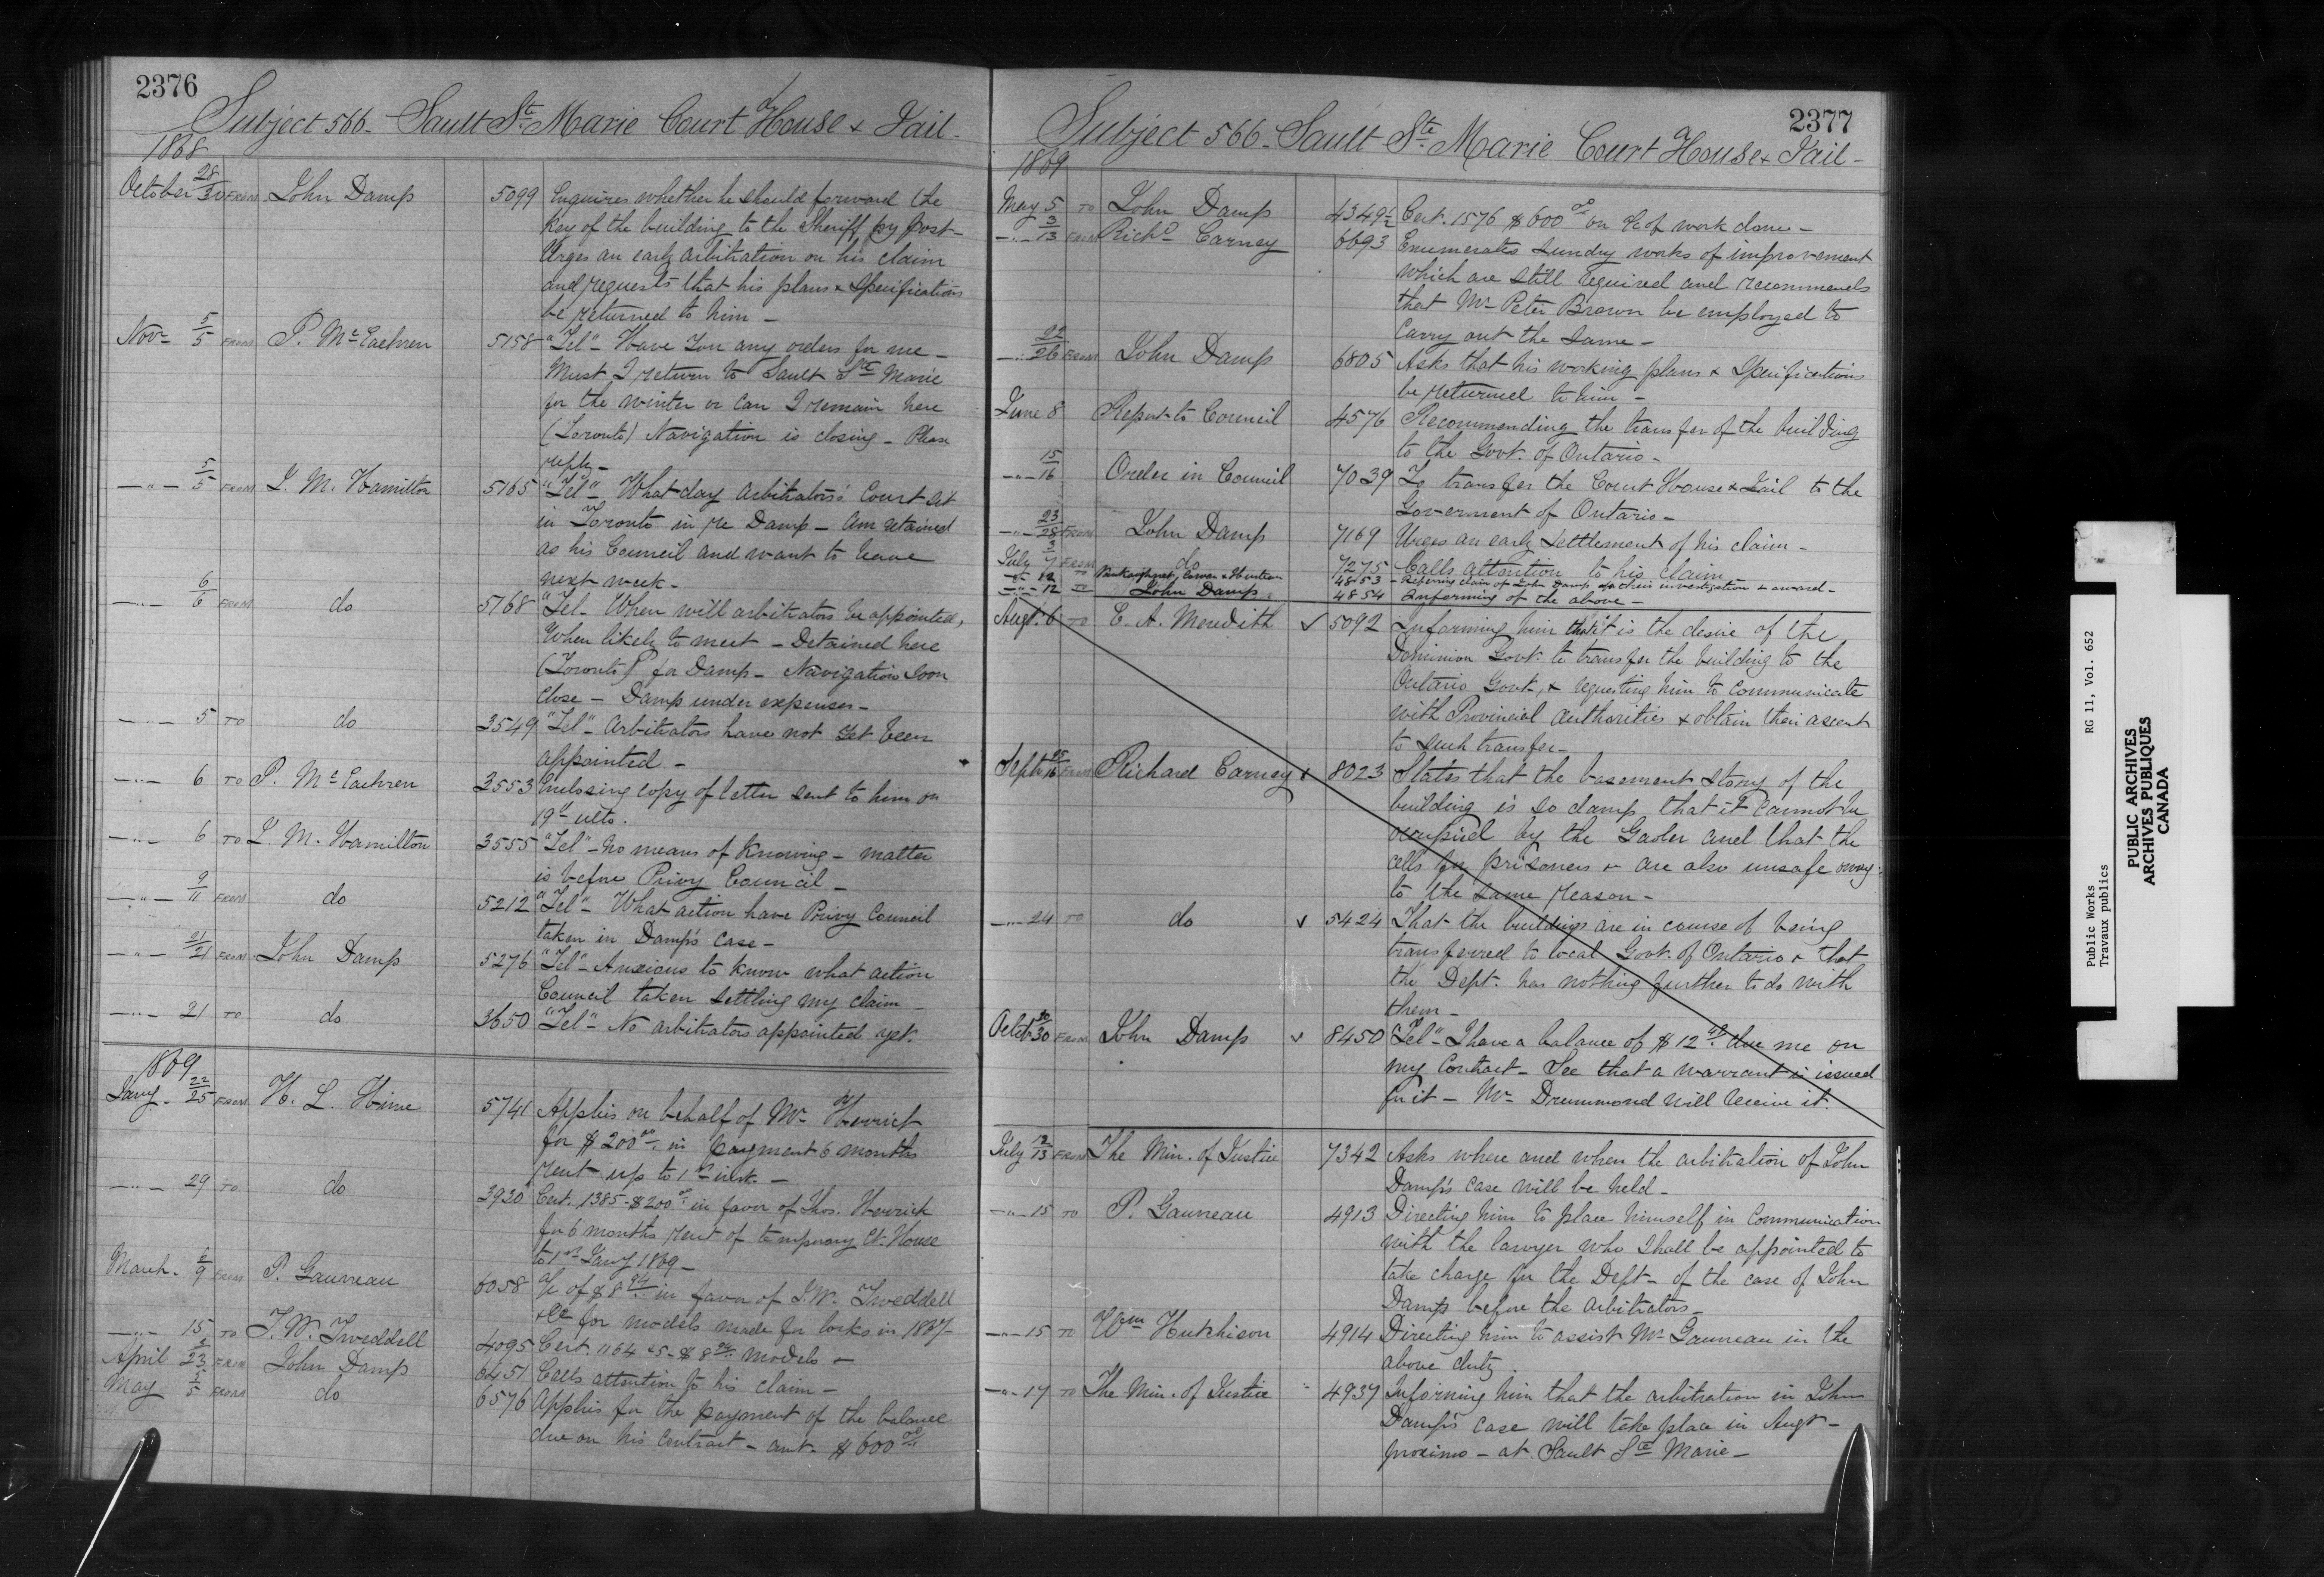 2376
Subject 566 - Sault Ste Marie Court House & Jail -
1868
October 28/30 FROM John Damp 5099 Enquires whether he should forward the
key of the building to the Sheriff by post -
Urges an early arbitration on his claim
and requests that his plans & Specifications
be returned to him -
Novr 5/5 FROM P. McEachren 5158 "Tel" - Have you any orders for me -
Must I return to Sault Ste Marie
for the winter or can I remain here
(Toronto) Navigation is closing - Please
reply -
-"- 5/5 FROM J. M. Hamilton 5165 "Tel" - What day arbitrators' Court sit
in Toronto in re Damp - Am retained
as his Council and want to leave
next week -
-"- 6/6 FROM do 5168 "Tel - When will arbitrators be appointed,
When likely to meet - Detained here
(Toronto) for Damp - Navigation soon
close - Damp under expenses -
-"- 5 TO do 3549 "Tel" - Arbitrators have not yet been
appointed -
-"- 6 TO P. McEachren 3553 Enclosing copy of letter sent to him on
19th ulto.
-"- 6 TO J. M. Hamilton 3555 "Tel" - No means of knowing - matter
is before Privy Council -
-"- 9/11 FROM do 5212 "Tel" - What action have Privy Council
taken in Damp's case -
-"- 21/21 FROM John Damp 5276 "Tel" - Anxious to know what action
Council taken settling my claim -
-"- 21 TO do 3650 "Tel" - No arbitrators appointed yet.
1869
Jany - 22/25 FROM H. L. Hime 5741 Applies on behalf of Mr Herrick
for $200.00 in payment 6 months
rent up to 1st inst. -
-"- 29 TO do 3930 Cert. 1385 - $200.00 in favor of Thos. Herrick
for 6 months rent of temporary Ct. House
to 1st Jany 1869 -
March - 6/9 FROM P. Gauvreau 6058 a/c of $8.94 in favor of J.W. Tweddell
& Co for models made for locks in 1867 -
-"- 15 TO J. W. Tweddell 4095 Cert. 1164 & 5 - $8.94 Models -
April 2/23 FROM John Damp 6451 Calls attention to his claim -
May 5/5 FROM do 6576 Applies for the payment of the balance
due on his contract - amt. $600.00
2377
Subject 566 - Sault Ste Marie Court House & Jail -
1869
May 5 TO John Damp 4349½ Cert. 1576 $600.00 on a/c of work done -
-"- 3/13 FROM Richd Carney 6693 Enumerates sundry works of improvement
which are still required and recommends
that Mr Peter Brown be employed to
carry out the same -
-"- 22/26 FROM John Damp 6805 Asks that his working plans & Specifications
be returned to him -
June 8 Report to Council 4576 Recommending the transfer of the building
to the Govt. of Ontario -
-"- 15/16 Order in Council 7039 To transfer the Court House & Jail to the
Goverment of Ontario -
-"- 23/28 FROM John Damp 7169 Urges an early settlement of his claim -
July 3/7 FROM do 7275 Calls attention to his claim
-"- 12 TO 4853 - Refering claim of John Damp for their investigation & award -
-"- 12 TO John Damp 4854 Informing of the above -
Augt. 6 TO E. A. Meredith ✓ 5092 Informing him that it is the desire of the
Dominion Govt. to transfer the building to the
Ontario Govt., & requesting him to communicate
with Provincial authorities & obtain their assent
to such transfer -
Septr 16 FROM Richard Carney ✓ 8023 States that the basement story of the
building is so damp that it cannot be
occupied by the Gaoler and that the
cells for prisoners are also unsafe owing
to the same reason -
-"- 24 TO do ✓ 5424 That the buildings are in course of being
transferred to local Govt. of Ontario & that
the Dept. has nothing further to do with
them -
Octobr 30/30 FROM John Damp ✓ 8450 "Tel" - I have a balance of $12 due me on
my contract - See that a warrant is issued
for it - Mr Drummond will receive it.
July 12/13 FROM The Min. of Justice 7342 Asks where and when the arbitration of John
Damp's case will be held -
-"- 15 TO P. Gauvreau 4913 Directing him to place himself in communication
with the lawyer who shall be appointed to
take charge for the Dept - of the case of John
Damp before the Arbitrators -
-"- 15 TO Wm Hutchison 4914 Directing him to assist Mr Gauvreau in the
above duty.
-"- 17 TO The Min. of Justice 4937 Informing him that the arbitration in John
Damp's case will take place in Augt -
proximo - at Sault Ste Marie -
Public Works RG 11, Vol. 652
Travaux publics
PUBLIC ARCHIVES
ARCHIVES PUBLIQUES
CANADA